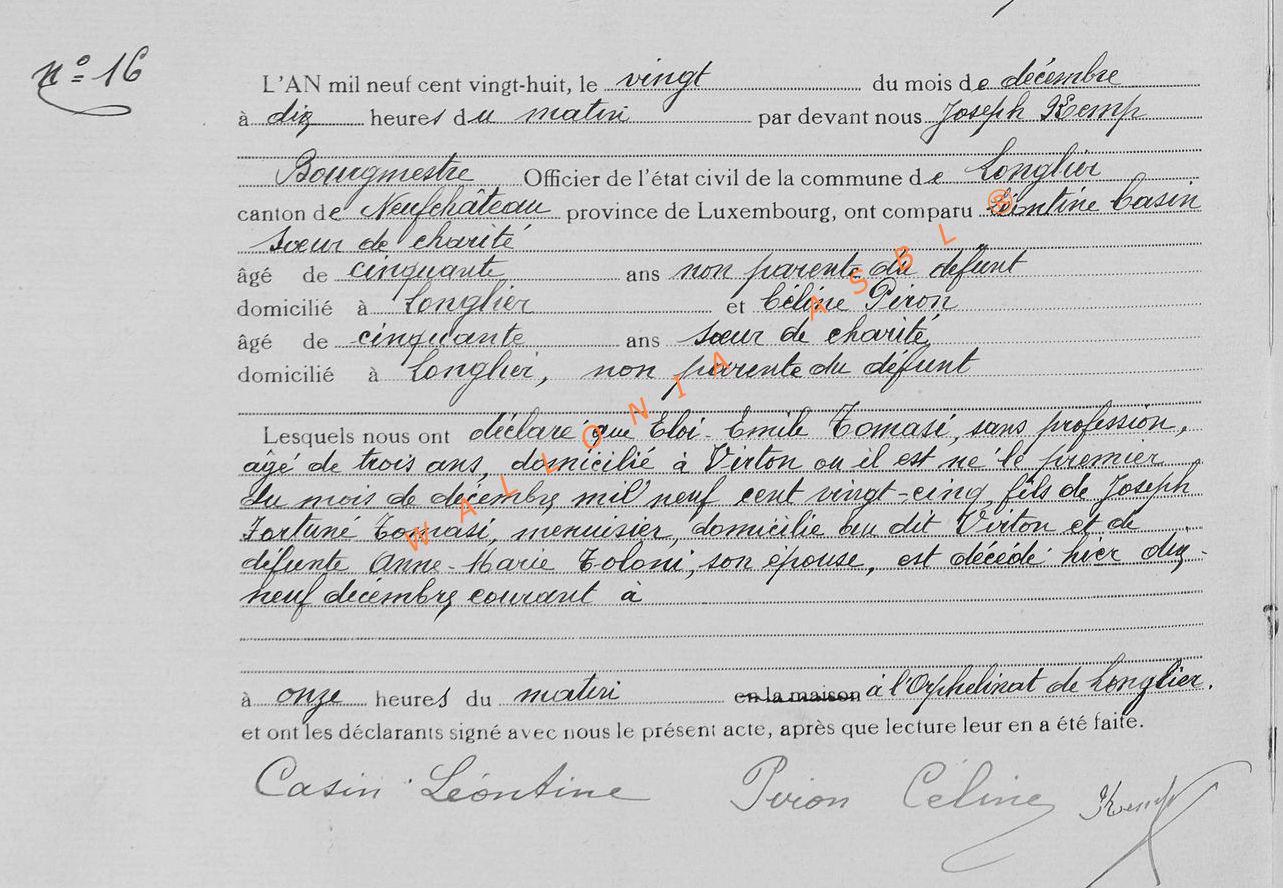 n° 16
L'AN mil neuf cent vingt-huit, le vingt du mois de décembre
à dix heures du matin par devant nous Joseph Kemp
Bourgmestre Officier de l'état civil de la commune de Longlier
canton de Neufchâteau province de Luxembourg, ont comparu Léontine Casin
sœur de charité
âgé de cinquante ans non parente du défunt
domicilié à Longlier et Céline Piron
âgé de cinquante ans sœur de charité
domicilié à Longlier, non parente du défunt
Lesquels nous ont déclaré que Eloi-Emile Tomasi, sans profession,
âgé de trois ans, domicilié à Virton où il est né le premier
du mois de décembre mil neuf cent vingt-cinq, fils de Joseph
Fortuné Tomasi, menuisier, domicilié au dit Virton et de
défunte Anne-Marie Toloni, son épouse, est décédé hier dix-
neuf décembre courant à
à onze heures du matin en la maison à l'Orphelinat de Longlier.
et ont les déclarants signé avec nous le présent acte, après que lecture leur en a été faite.
Casin Léontine Piron Céline
WALLONIA ASBL ®